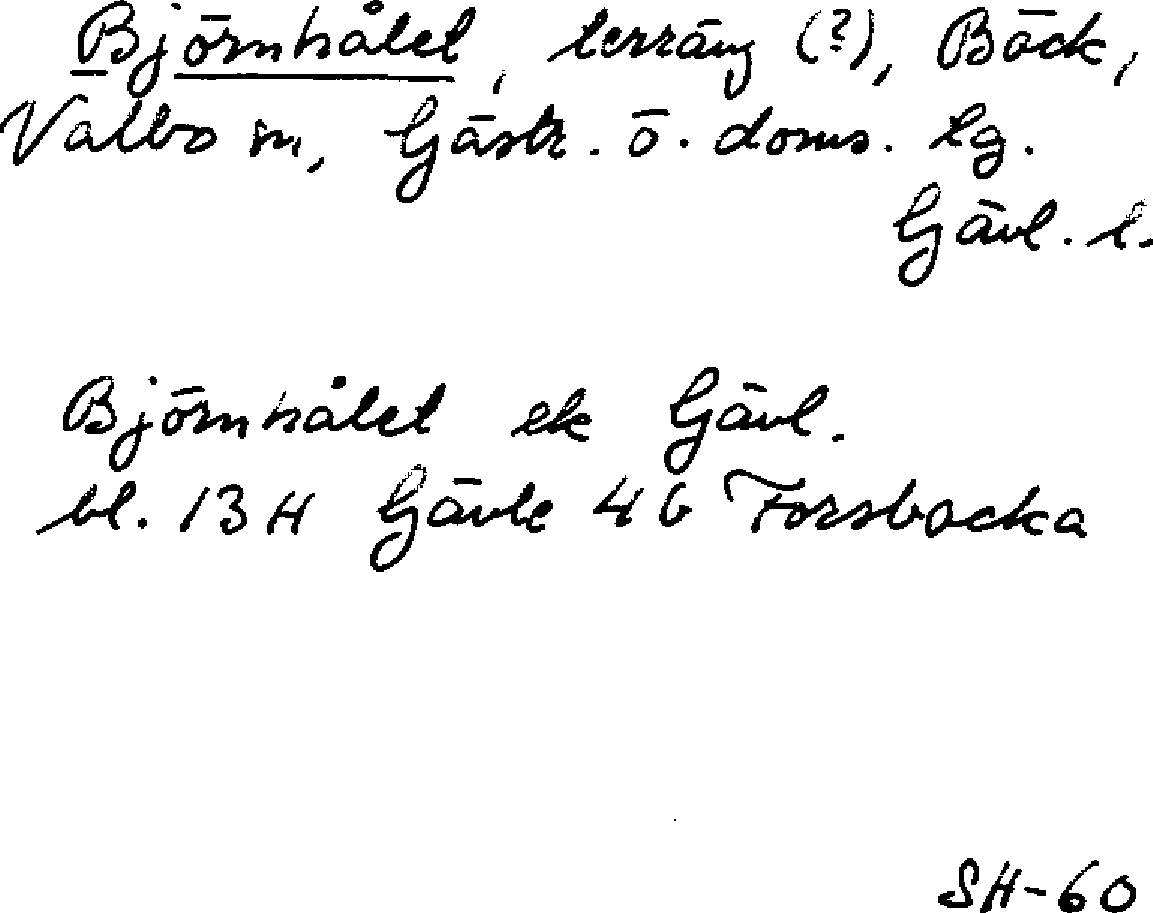 Björnhålet, terräng (?), Bäck,
Valbo sn, Gästr. ö. doms. lg.
Gävl. l.
Björnhålet ek Gävl.
bl. 13 H Gävle 4 b Forsbacka
SH-60